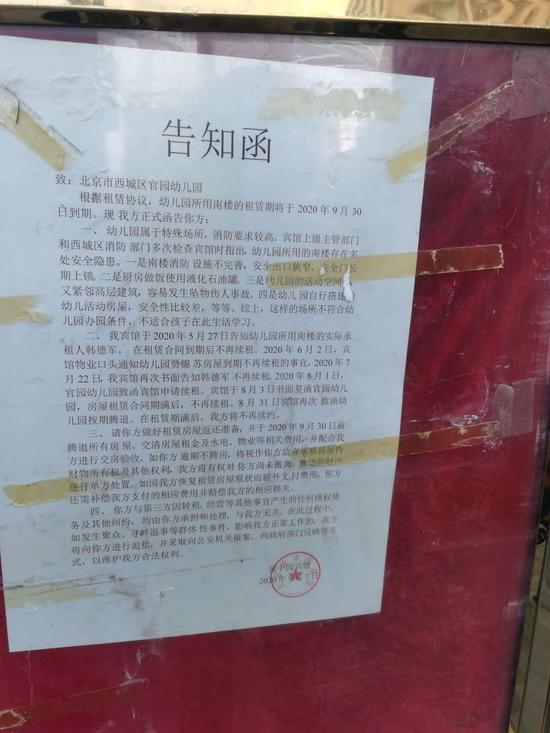 告知函
致：北京市西城区官园幼儿园
根据租赁协议，幼儿园所用南楼的租赁期将于 2020 年 9 月 30
日到期。现 我方正式函告你方：
一、幼儿园属于特殊场所，消防要求较高。宾馆上级主管部门
和西城区消防 部门多次检查宾馆时指出，幼儿园所用的南楼存在多
处安全隐患。一是南楼消防 设施不完善，安全出口狭窄，安全门长
期上锁。二是厨房做饭使用液化石油罐。三是幼儿园的活动空间
又紧邻高层建筑，容易发生坠物伤人事故。四是幼儿园自行搭建
幼儿活动房屋，安全性比较差，等等。综上，这样的场所不符合幼
儿园办园条件，不适合孩子在此生活学习。
二、我宾馆于 2020 年 5 月 27 日告知幼儿园所用南楼的实际承
租人韩德军， 在租赁合同到期后不再续租。2020 年 6 月 2 日，宾
馆物业口头通知幼儿园贾锦 苏房屋到期不再续租的事宜。2020 年 7
月 22 日，我宾馆再次书面告知韩德军 不再续租。2020 年 8 月 1 日，
官园幼儿园致函宾馆申请续租。宾馆于 8 月 3 日书面复函官园幼儿
园，房屋租赁合同期满后，不再续租。8 月 31 日宾馆再次 致函幼
儿园按期腾退。在租赁期满后，我方将不再续约。
三、请你方做好租赁房屋返还准备，并于 2020 年 9 月 30 日前
腾退所有房屋 、交清房屋租金及水电、物业等相关费用，并配合我
方进行交房验收。如你方 逾期不腾房，将视作你方放弃承租房屋内
财物所有权及其他权利，我方将有权对 你方尚未搬离、腾退的财产
进行单方处置。如因我方恢复租赁房屋原状而额外支付费用，你方
还需补偿我方支付的相应费用并赔偿我方的相应损失。
四、你方与第三方因转租、经营等其他事宜产生的任何债权债
务及其他纠纷，均由你方承担和处理，与我方无关。在此过程中，
如发生聚众、寻衅滋事等群体 性事件，影响我方正常工作的，我方
将向你方进行追偿，并采取向公安机关报案、向政府部门反映等方
式，以维护我方合法权利。
宾馆
2020 年 月 7 日